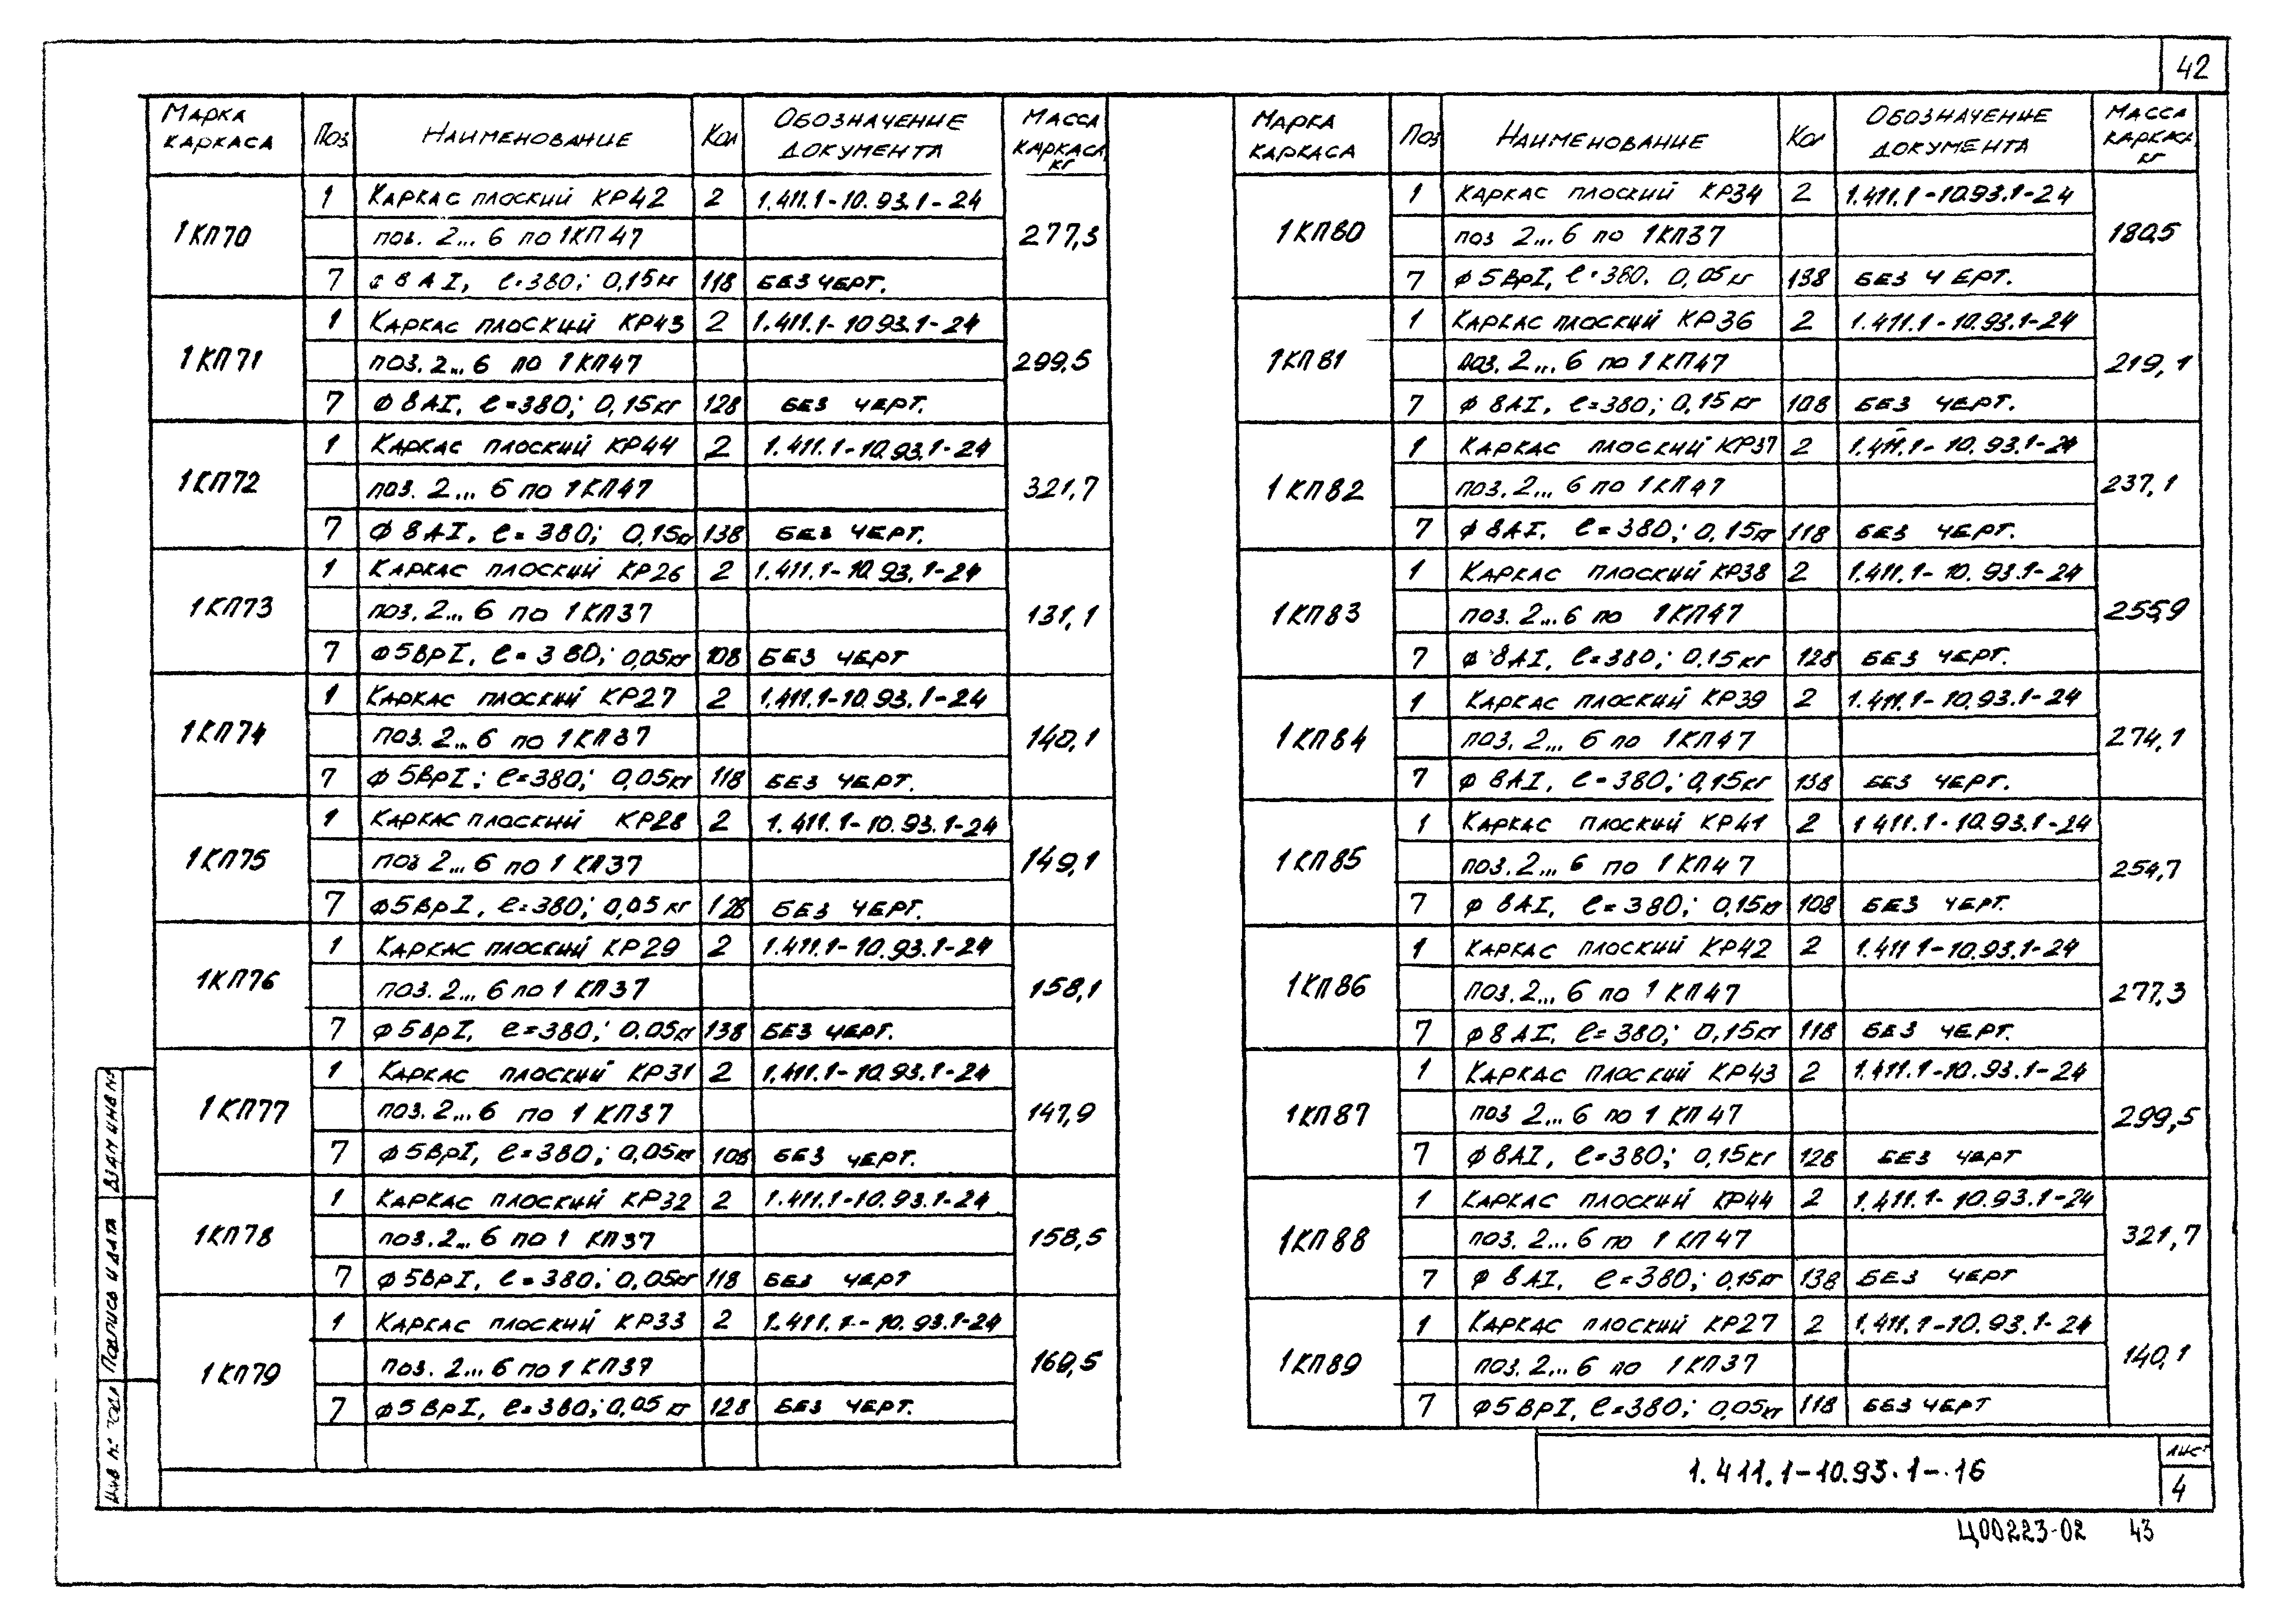 42
МАРКА КАРКАСА ПОЗ НАИМЕНОВАНИЕ КОЛ ОБОЗНАЧЕНИЕ ДОКУМЕНТА МАССА КАРКАСА, КГ
1КП70 277,3
1 КАРКАС ПЛОСКИЙ КР42 2 1.411.1-10.93.1-24
ПОЗ. 2...6 ПО 1КП47
7 ϕ8АI, ℓ=380; 0,15кг 118 БЕЗ ЧЕРТ.
1КП71 299,5
1 КАРКАС ПЛОСКИЙ КР43 2 1.411.1-10 93.1-24
ПОЗ. 2...6 ПО 1КП47
7 ϕ8АI, ℓ=380; 0,15кг 128 БЕЗ ЧЕРТ.
1КП72 321,7
1 КАРКАС ПЛОСКИЙ КР44 2 1.411.1-10.93.1-24
ПОЗ. 2...6 ПО 1КП47
7 ϕ8АI, ℓ=380; 0,15кг 138 БЕЗ ЧЕРТ.
1КП73 131,1
1 КАРКАС ПЛОСКИЙ КР26 2 1.411.1-10.93.1-24
ПОЗ. 2...6 ПО 1КП37
7 ϕ5ВрI, ℓ=380; 0,05кг 108 БЕЗ ЧЕРТ
1КП74 140,1
1 КАРКАС ПЛОСКИЙ КР27 2 1.411.1-10.93.1-24
ПОЗ. 2...6 ПО 1КП37
7 ϕ5ВрI; ℓ=380; 0,05кг 118 БЕЗ ЧЕРТ.
1КП75 149,1
1 КАРКАС ПЛОСКИЙ КР28 2 1.411.1-10.93.1-24
ПОЗ 2...6 ПО 1КП37
7 ϕ5ВрI, ℓ=380; 0,05кг 128 БЕЗ ЧЕРТ.
1КП76 158,1
1 КАРКАС ПЛОСКИЙ КР29 2 1.411.1-10.93.1-24
ПОЗ. 2...6 ПО 1КП37
7 ϕ5ВрI, ℓ=380; 0.05кг 138 БЕЗ ЧЕРТ.
1КП77 147,9
1 КАРКАС ПЛОСКИЙ КР31 2 1.411.1-10.93.1-24
ПОЗ. 2...6 ПО 1КП37
7 ϕ5ВрI, ℓ=380; 0,05кг 108 БЕЗ ЧЕРТ.
1КП78 158,5
1 КАРКАС ПЛОСКИЙ КР32 2 1.411.1-10.93.1-24
ПОЗ. 2...6 ПО 1КП37
7 ϕ5ВрI, ℓ=380; 0,05кг 118 БЕЗ ЧЕРТ
1КП79
1 КАРКАС ПЛОСКИЙ КР33 2 1.411.1-10.93.1-24
ПОЗ. 2...6 ПО 1КП37
7 ϕ5ВрI, ℓ=380; 0,05кг 128 БЕЗ ЧЕРТ.
МАРКА КАРКАСА ПОЗ НАИМЕНОВАНИЕ КОЛ ОБОЗНАЧЕНИЕ ДОКУМЕНТА МАССА КАРКАСА, КГ
1КП80 180,5
1 КАРКАС ПЛОСКИЙ КР34 2 1.411.1-10.93.1-24
ПОЗ 2...6 ПО 1КП37
7 ϕ5ВрI, ℓ=380. 0,05кг 138 БЕЗ ЧЕРТ.
1КП81 219,1
1 КАРКАС ПЛОСКИЙ КР36 2 1.411.1-10.93.1-24
ПОЗ. 2...6 ПО 1КП47
7 ϕ8АI, ℓ=380; 0,15кг 108 БЕЗ ЧЕРТ.
1КП82 237,1
1 КАРКАС ПЛОСКИЙ КР37 2 1.411.1-10.93.1-24
ПОЗ. 2...6 ПО 1КП47
7 ϕ8АI, ℓ=380; 0,15кг 118 БЕЗ ЧЕРТ.
1КП83 255,9
1 КАРКАС ПЛОСКИЙ КР38 2 1.411.1-10.93.1-24
ПОЗ. 2...6 ПО 1КП47
7 ϕ8АI, ℓ=380; 0.15кг 128 БЕЗ ЧЕРТ.
1КП84 274,1
1 КАРКАС ПЛОСКИЙ КР39 2 1.411.1-10.93.1-24
ПОЗ. 2...6 ПО 1КП47
7 ϕ8АI, ℓ=380; 0,15кг 138 БЕЗ ЧЕРТ.
1КП85 254,7
1 КАРКАС ПЛОСКИЙ КР41 2 1 411.1-10.93.1-24
ПОЗ. 2...6 ПО 1КП47
7 ϕ8АI, ℓ=380; 0,15кг 108 БЕЗ ЧЕРТ.
1КП86 277,3
1 КАРКАС ПЛОСКИЙ КР42 2 1.411 1-10.93.1-24
ПОЗ. 2...6 ПО 1КП47
7 ϕ8АI, ℓ=380; 0,15кг 118 БЕЗ ЧЕРТ.
1КП87 299,5
1 КАРКАС ПЛОСКИЙ КР43 2 1.411.1-10.93.1-24
ПОЗ 2...6 ПО 1КП47
7 ϕ8АI, ℓ=380; 0,15кг 128 БЕЗ ЧЕРТ
1КП88 321,7
1 КАРКАС ПЛОСКИЙ КР44 2 1.411.1-10.93.1-24
ПОЗ. 2...6 ПО 1КП47
7 ϕ8АI, ℓ=380; 0,15кг 138 БЕЗ ЧЕРТ
1КП89 140,1
1 КАРКАС ПЛОСКИЙ КР27 2 1.411.1-10.93.1-24
ПОЗ. 2...6 ПО 1КП37
7 ϕ5ВрI, ℓ=380; 0,05кг 118 БЕЗ ЧЕРТ
ВЗАМ ИНВ №
ПОДПИСЬ И ДАТА
ИНВ № ПОДЛ
1.411.1-10.93.1-16
ЛИСТ
4
Ц00223-02 43